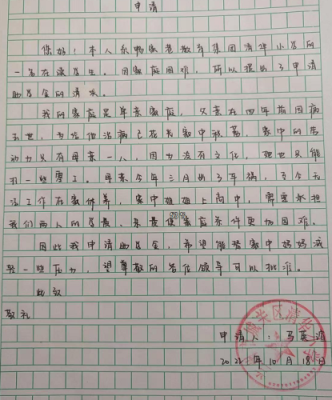 申请
您好！本人系鸭暖巷教育集团清华小学的
一名在读学生。因家庭困难，所以提出了申请
助学金的请求。
我的家庭是单亲家庭，父亲在四年前因病
去世，为给他治病已花光家中积蓄，家中的劳
动力只有母亲一人，因为没有文化，他也只能
打一些零工。母亲今年三月份了车祸，至今无
法工作在家休养，家中姐姐上高中，需要承担
我们两人的学费，来是使家庭条件更加困难。
因此我申请助学金，希望能替家中妈妈减
轻一些压力，望尊敬的各位领导可以批准。
此致
敬礼
申请人：马
2022年10月18日